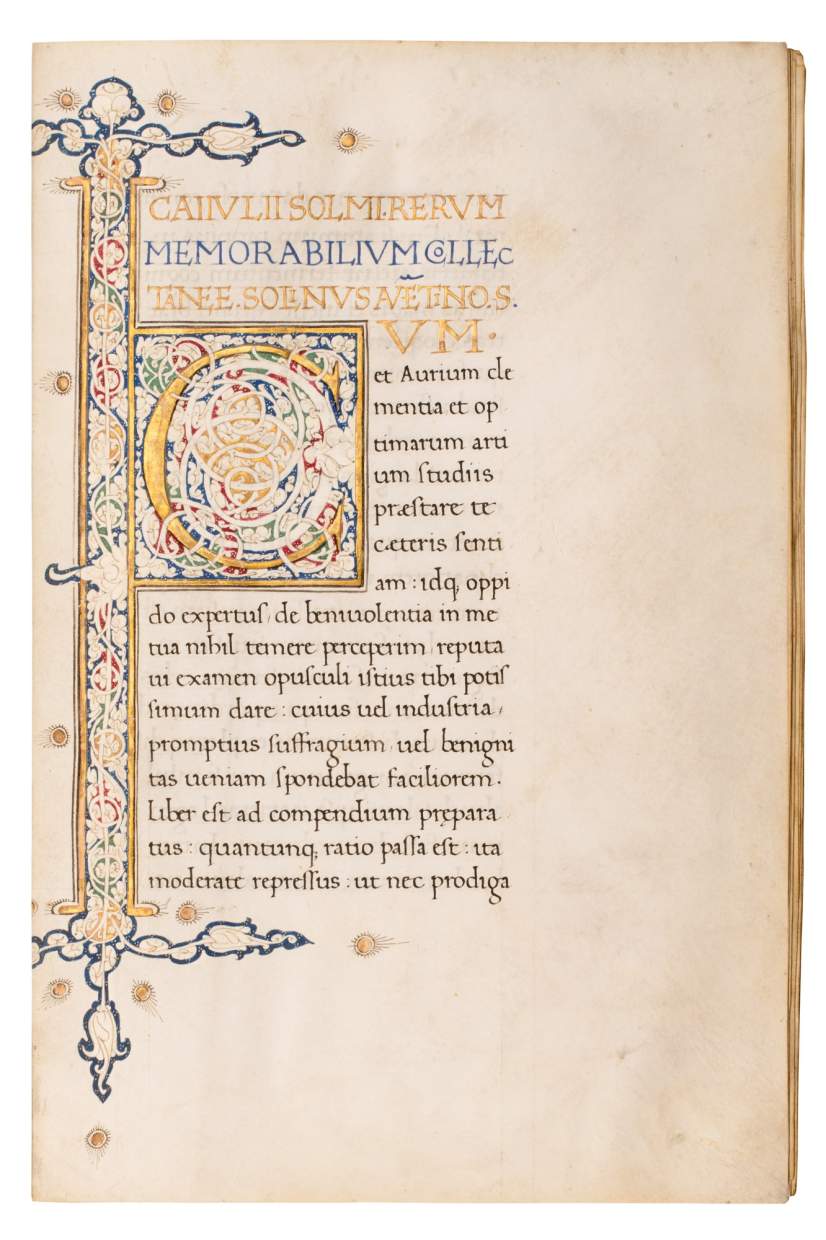 CAII IVLII SOLINI. RERVM
MEMORABILIVM COLLEC
TANEE. SOLINVS AVĒTINO. S.
CVM.
et Aurium cle
mentia et op
timarum arti
um studiis
præstare te
cæteris senti
am : idq; oppi
do expertus, de beniuolentia in me
tua nihil temere perceperim, reputa
ui examen opusculi istius tibi potis
simum dare : cuius uel industria,
promptius suffragium, uel benigni
tas ueniam spondebat faciliorem.
Liber est ad compendium prępara
tus : quantunq; ratio passa est : ita
moderate repressus : ut nec prodiga